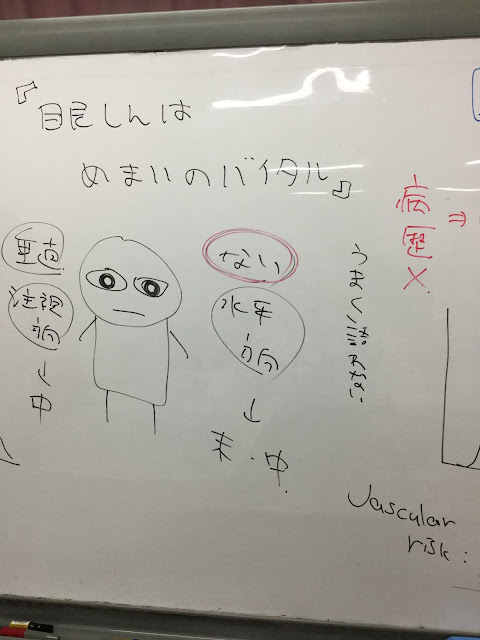 『眼しんは
めまいのバイタル』
垂直
注視
方向
↓
中
ない
水平
方向
↓
末・中
うまく語れない
病歴× ⇒
Vascular
risk: